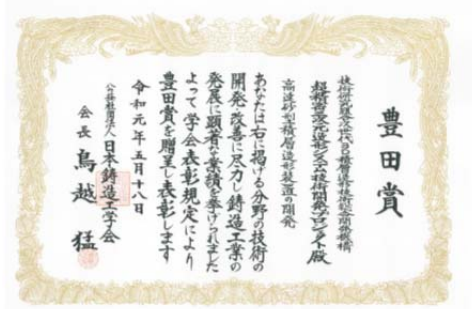 豊田賞
技術研究組合次世代3D積層造形技術総合開発機構
超精密三次元造形システム技術開発プロジェクト殿
高速砂型積層造形装置の開発
あなたは右に掲げる分野の技術の
開発・改善に尽力し鋳造工業の
発展に顕著な業績を挙げられました
よって学会表彰規定により
豊田賞を贈呈し表彰します
令和元年五月十八日
公益社団法人日本鋳造工学会
会長 鳥越 猛